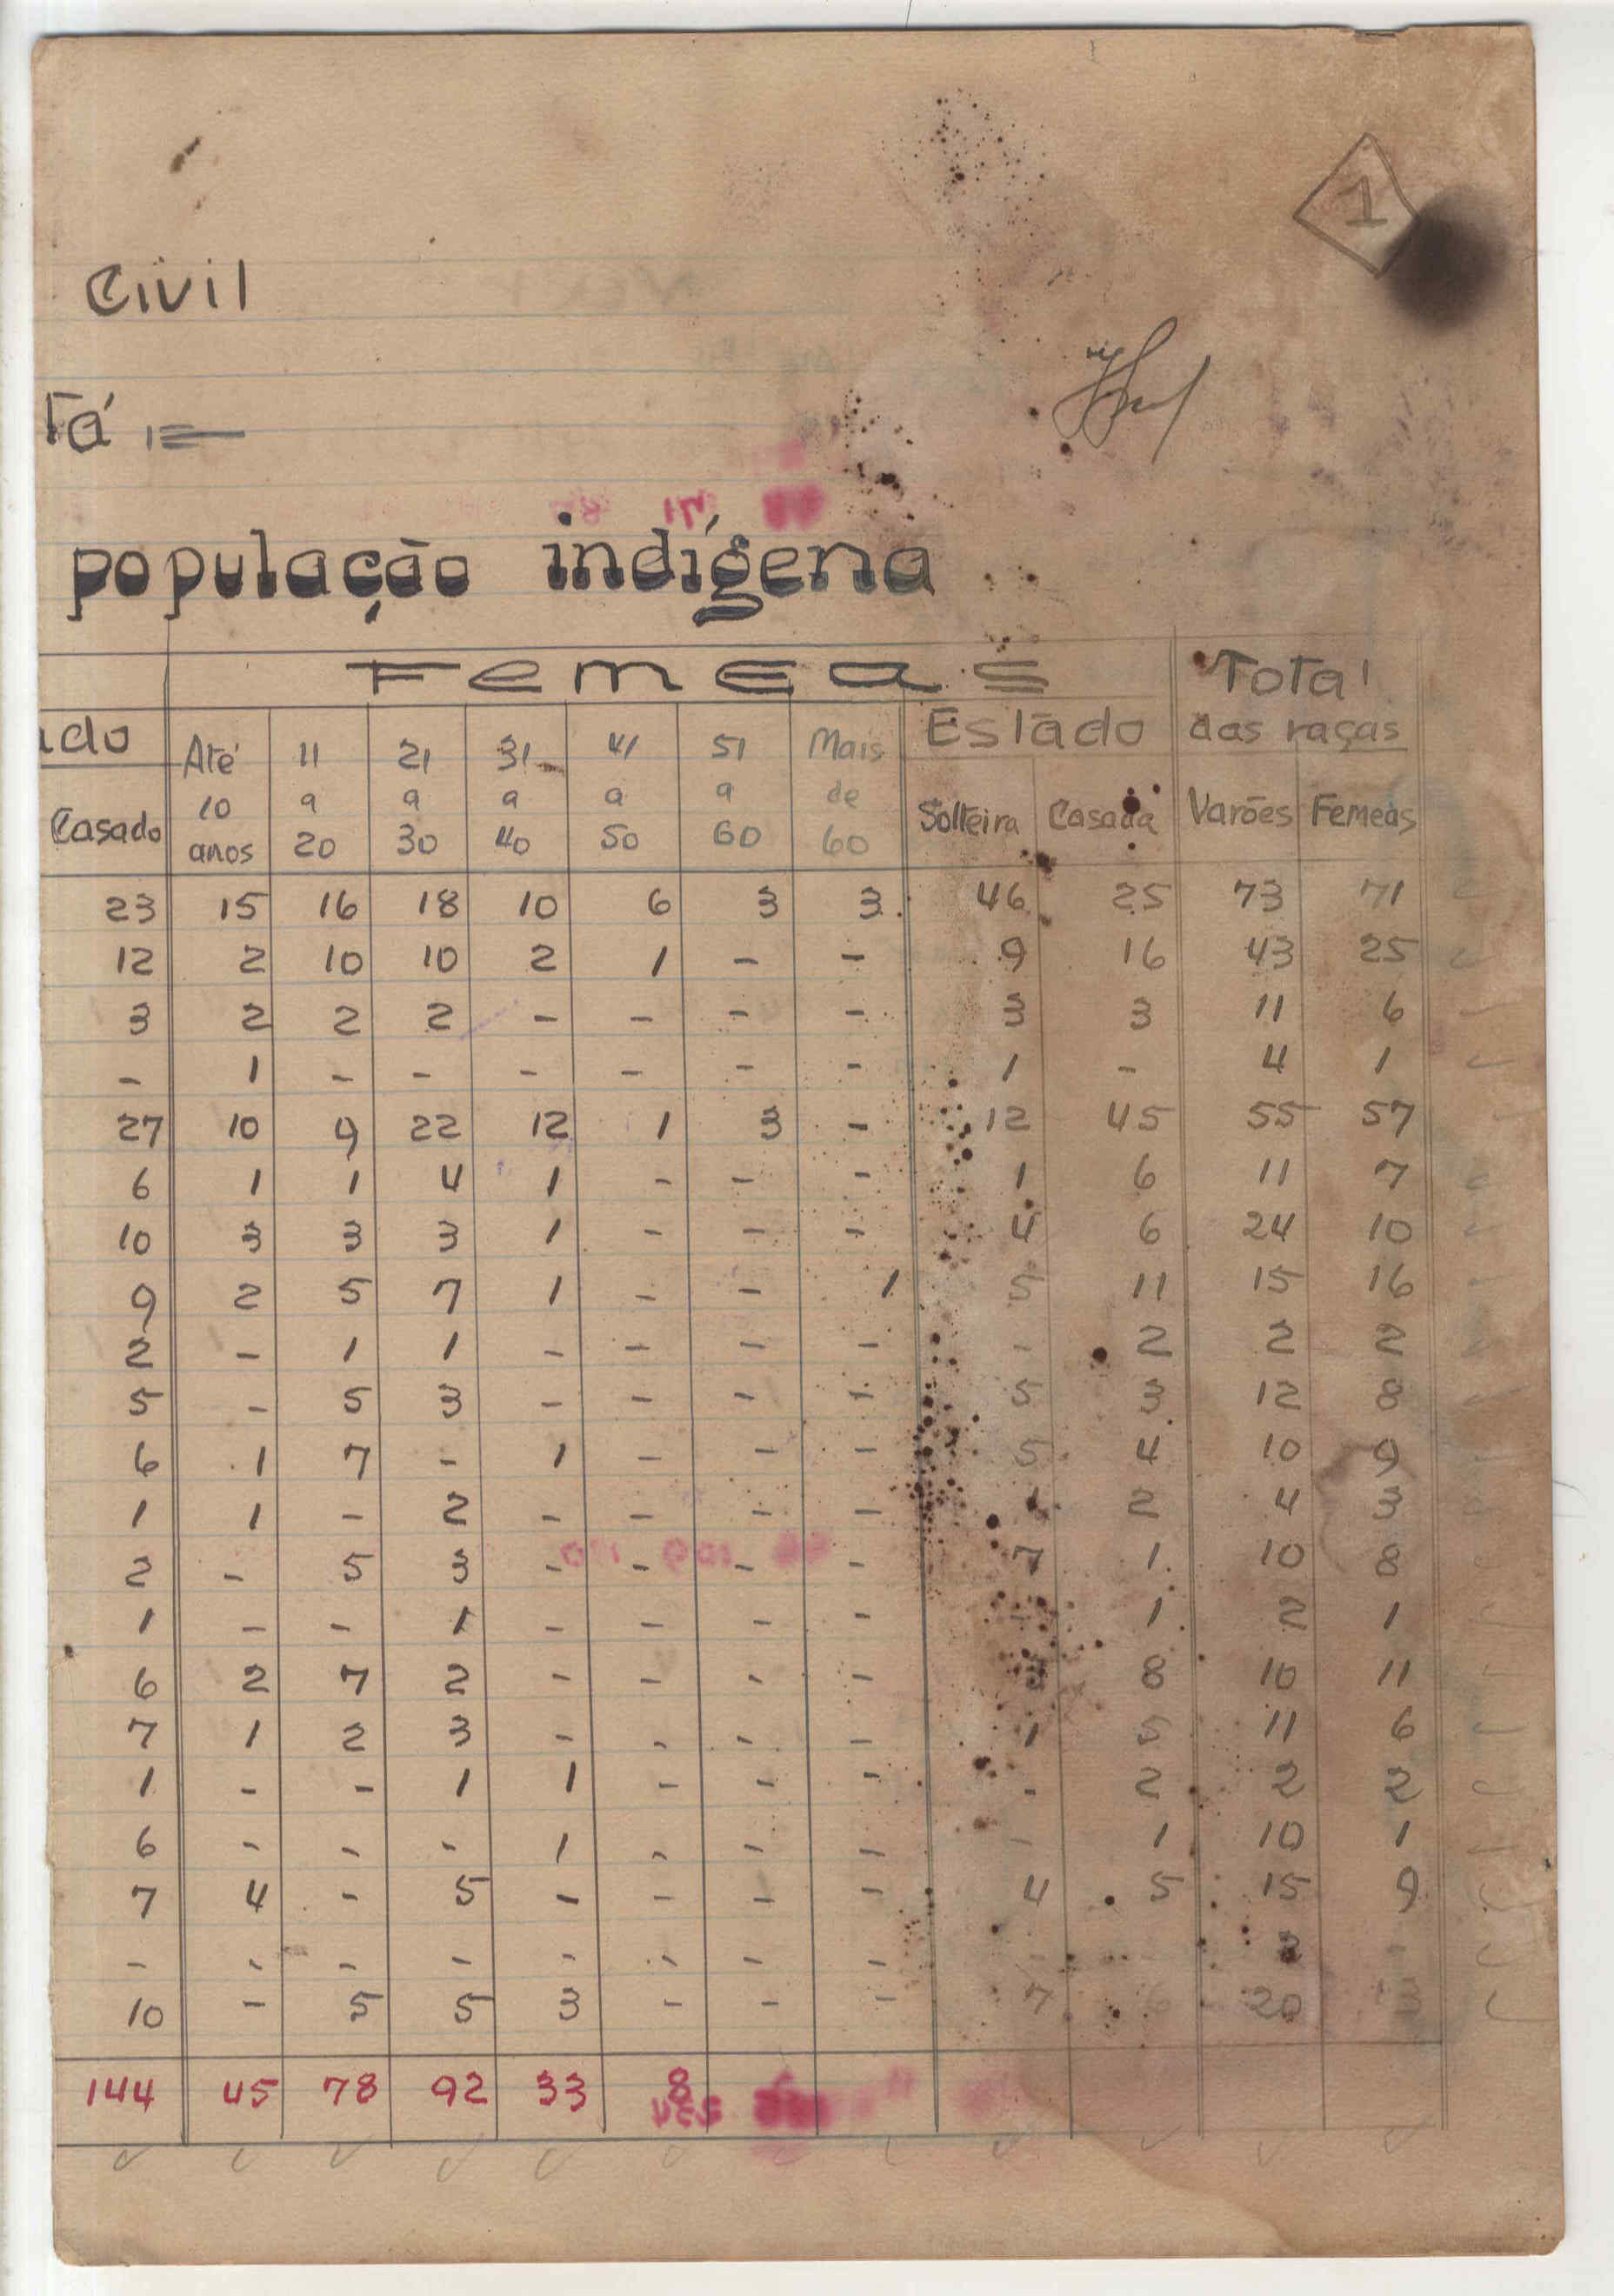 1
Civil
Tá
população indígena
Femeas Total
ado Até 11 21 31 41 51 Mais Estado das raças
10 a a a a a de
Casado anos 20 30 40 50 60 60 Solteira Casada Varões Femeas
23 15 16 18 10 6 3 3 46 25 73 71
12 2 10 10 2 1 - - 9 16 43 25
3 2 2 2 - - - - 3 3 11 6
- 1 - - - - - - 1 - 4 1
27 10 9 22 12 1 3 - 12 45 55 57
6 1 1 4 1 - - - 1 6 11 7
10 3 3 3 1 - - - 4 6 24 10
9 2 5 7 1 - - 1 5 11 15 16
2 - 1 1 - - - - - 2 2 2
5 - 5 3 - - - - 5 3 12 8
6 1 7 - 1 - - - 5 4 10 9
1 1 - 2 - - - - 1 2 4 3
2 - 5 3 - - - - 7 1 10 8
1 - - 1 - - - - - 1 2 1
6 2 7 2 - - - - 8 10 11
7 1 2 3 - - - - 1 5 11 6
1 - - 1 1 - - - - 2 2 2
6 - - - 1 - - - - 1 10 1
7 4 - 5 - - - - 4 5 15 9
- - - - - - - - - - -
10 - 5 5 3 - - - 7 6 20
144 45 78 92 33 8